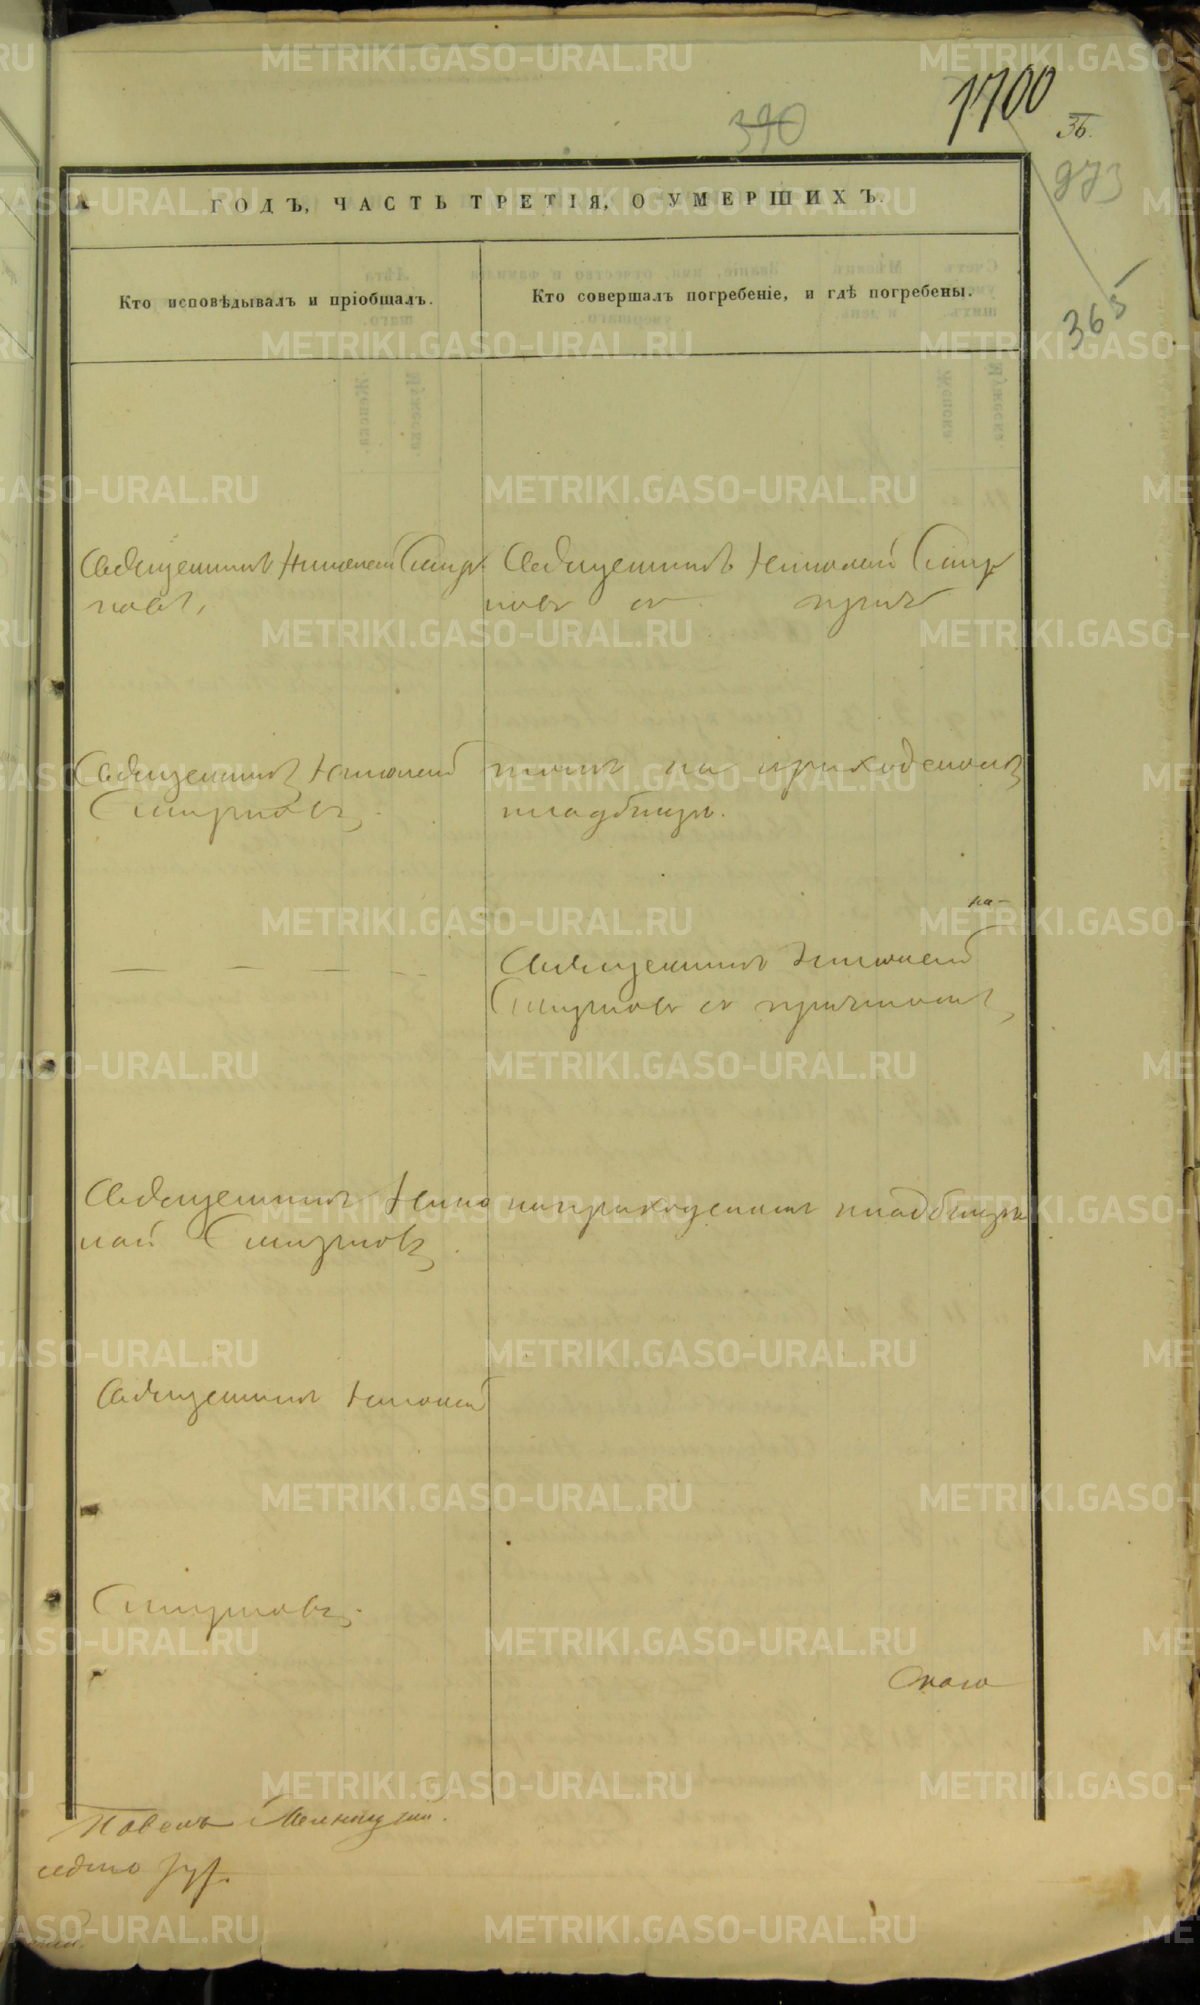 390
1700
36.
973
365
ГОДЪ, ЧАСТЬ ТРЕТІЯ, О УМЕРШИХЪ.
Кто исповѣдывалъ и пріобщалъ.
Кто совершалъ погребеніе, и гдѣ погребены.
Священникъ Николай Смир
новъ,
Священникъ Николай Смир
новъ съ прич
Священникъ Николай
Смирновъ.
томъ на приходскомъ
кладбищѣ.
на-
Священникъ Николай
Смирновъ съ причтомъ,
Священникъ Нико
лай Смирновъ
на приходскомъ кладбищѣ
Священникъ Николай
Смирновъ.
Онаго
Павелъ
METRIKI.GASO-URAL.RU